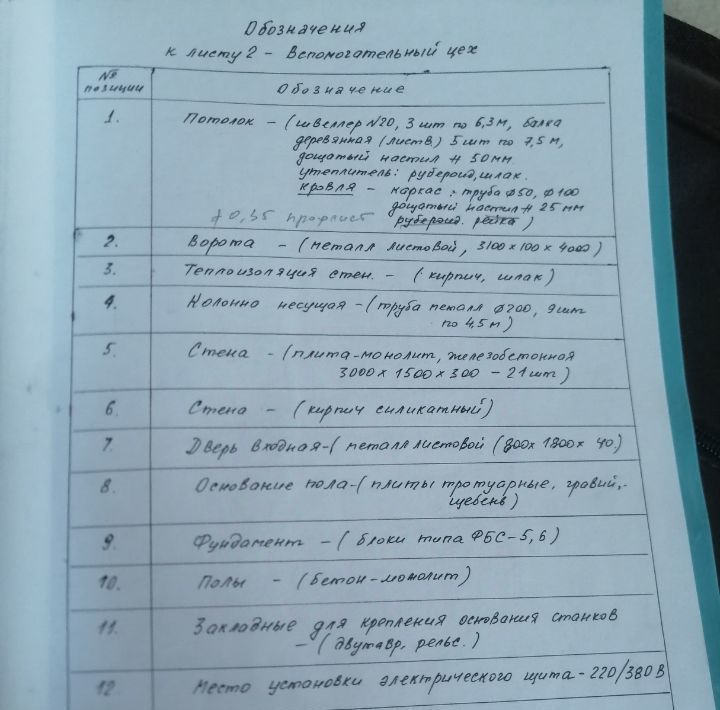 Обозначения
к листу 2 - Вспомогательный цех
№ позиции Обозначение
1. Потолок - (швеллер N20, 3 шт по 6,3 м, балка
деревянная (листв.) 5 шт по 7,5 м,
дощатый настил # 50 мм
утеплитель: рубероид, шлак.
кровля - каркас: труба ф50, ф100
дощатый настил # 25 мм
≠ 0,35 профлист рубероид. рейка)
2. Ворота - (металл листовой, 3100 х 100 х 4000)
3. Теплоизоляция стен. - (кирпич, шлак)
4. Колонно несущая - (труба металл ф200, 9 шт
по 4,5 м)
5. Стена - (плита-монолит, железобетонная
3000 х 1500 х 300 - 21 шт)
6. Стена - (кирпич силикатный)
7. Дверь входная - (металл листовой (800х 1800х 40)
8. Основание пола - (плиты тротуарные, гравий, -
щебень)
9. Фундамент - (блоки типа ФБС-5,6)
10. Полы - (бетон-монолит)
11. Закладные для крепления основания станков
- (двутавр, рельс.)
12. Место установки электрического щита - 220/380 В